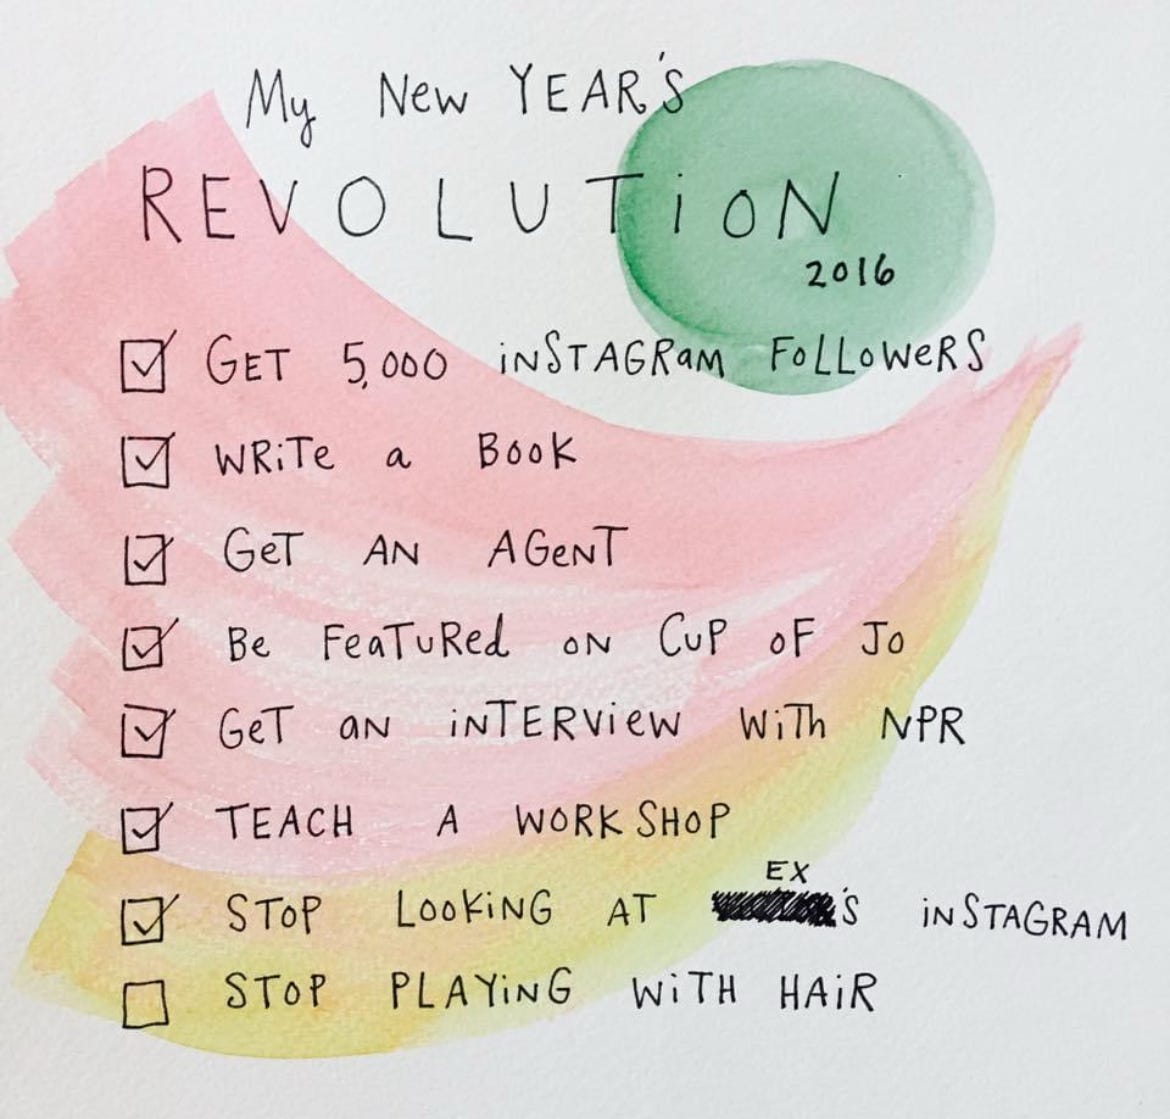 My New YEAR'S
REVOLUTiON
2016
GET 5,000 iNSTAGRaM FoLLoWeRS
WRiTe a BooK
GeT AN AGeNT
Be FeaTuRed oN CuP oF Jo
GeT aN iNTERview WiTh NPR
TEACH A WORKSHOP
EX
SToP LooKiNG AT 's iNSTAGRAM
STOP PLAYiNG WiTH HAiR